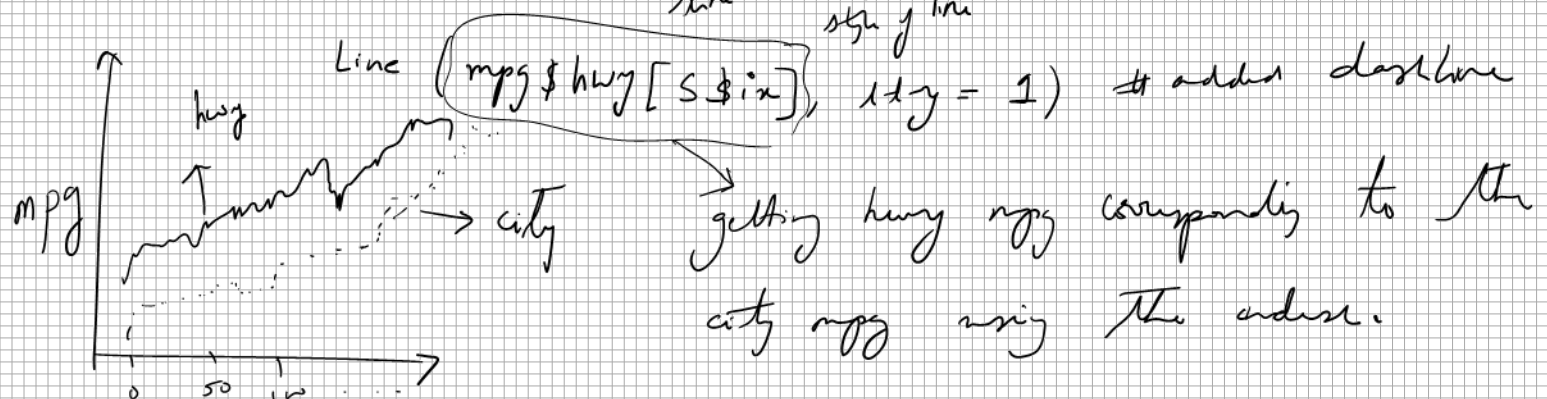 style of line
Line (mpg$hwy[S$ix], lty = 1) # added dashline
hwy
mpg
city
getting hwy mpg corresponding to the
city mpg using the index.
0 50 100 . . . .